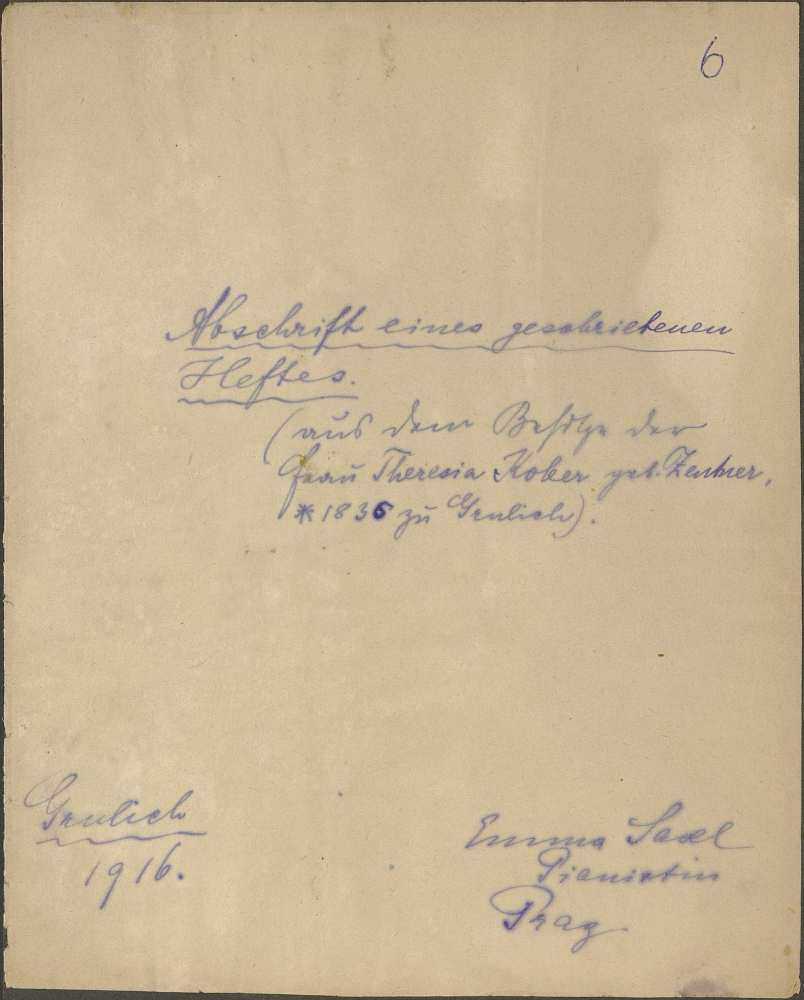 6
Abschrift eines geschriebenen
Heftes.
(aus dem Besitze der
Frau Theresia Kober geb. Zentner,
* 1836 zu Grulich).
Grulich
1916.
Emma Saxl
Pianistin
Prag